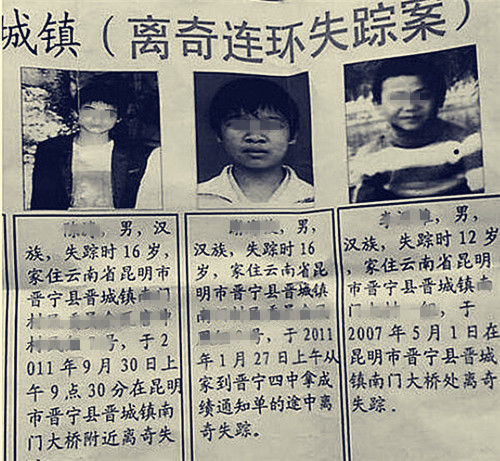 城镇（离奇连环失踪案）
，男，汉
族，失踪时16岁，
家住云南省昆明市
晋宁县晋城镇 门
村 号，于2
011年9月30日上
午9点30分在昆明
市晋宁县晋城镇南
门大桥附近离奇失
，男，
汉族，失踪时16
岁，家住云南省昆
明市晋宁县晋城镇
号，于2011
年1月27日上午从
家到晋宁四中拿成
绩通知单的途中离
奇失踪。
，男，
汉族，失踪时12岁
，家住云南省昆明
市晋宁县晋城镇
，于
2007年5月1日在
昆明市晋宁县晋城
镇南门大桥处离奇
失踪。